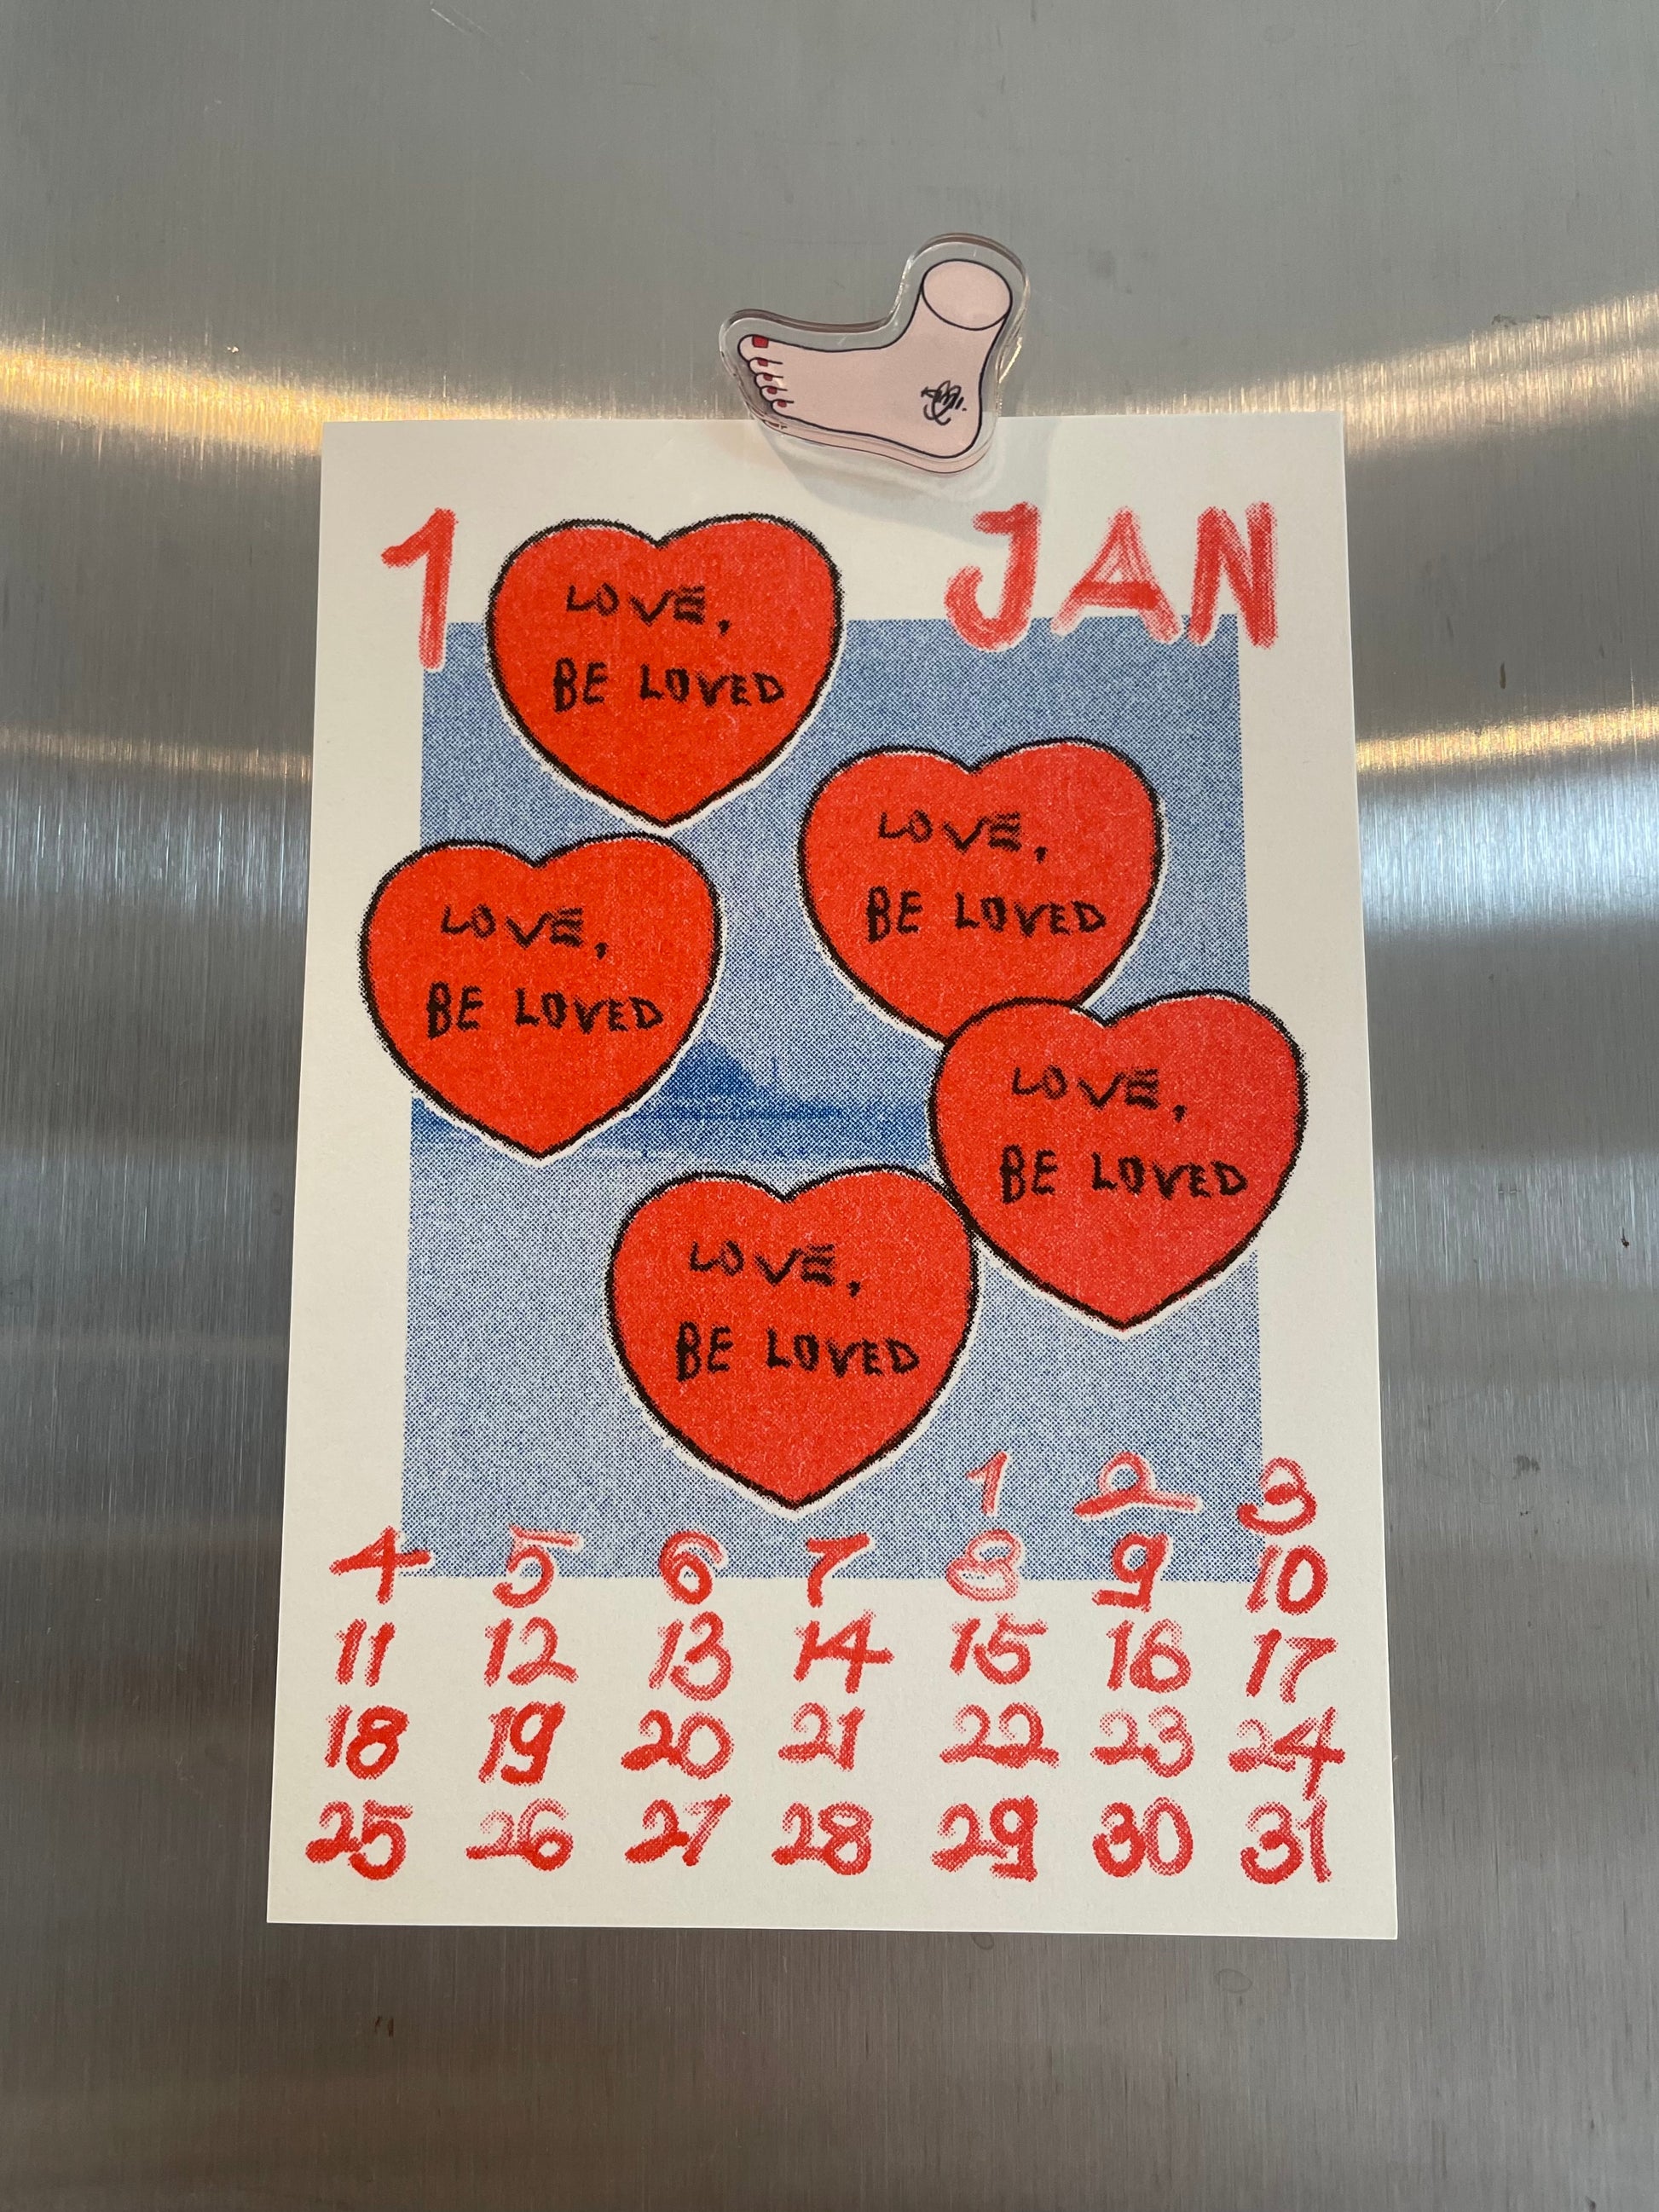 1 JAN
LOVE,
BE LOVED
LOVE,
BE LOVED
LOVE,
BE LOVED
LOVE,
BE LOVED
LOVE,
BE LOVED
1 2 3
4 5 6 7 8 9 10
11 12 13 14 15 16 17
18 19 20 21 22 23 24
25 26 27 28 29 30 31